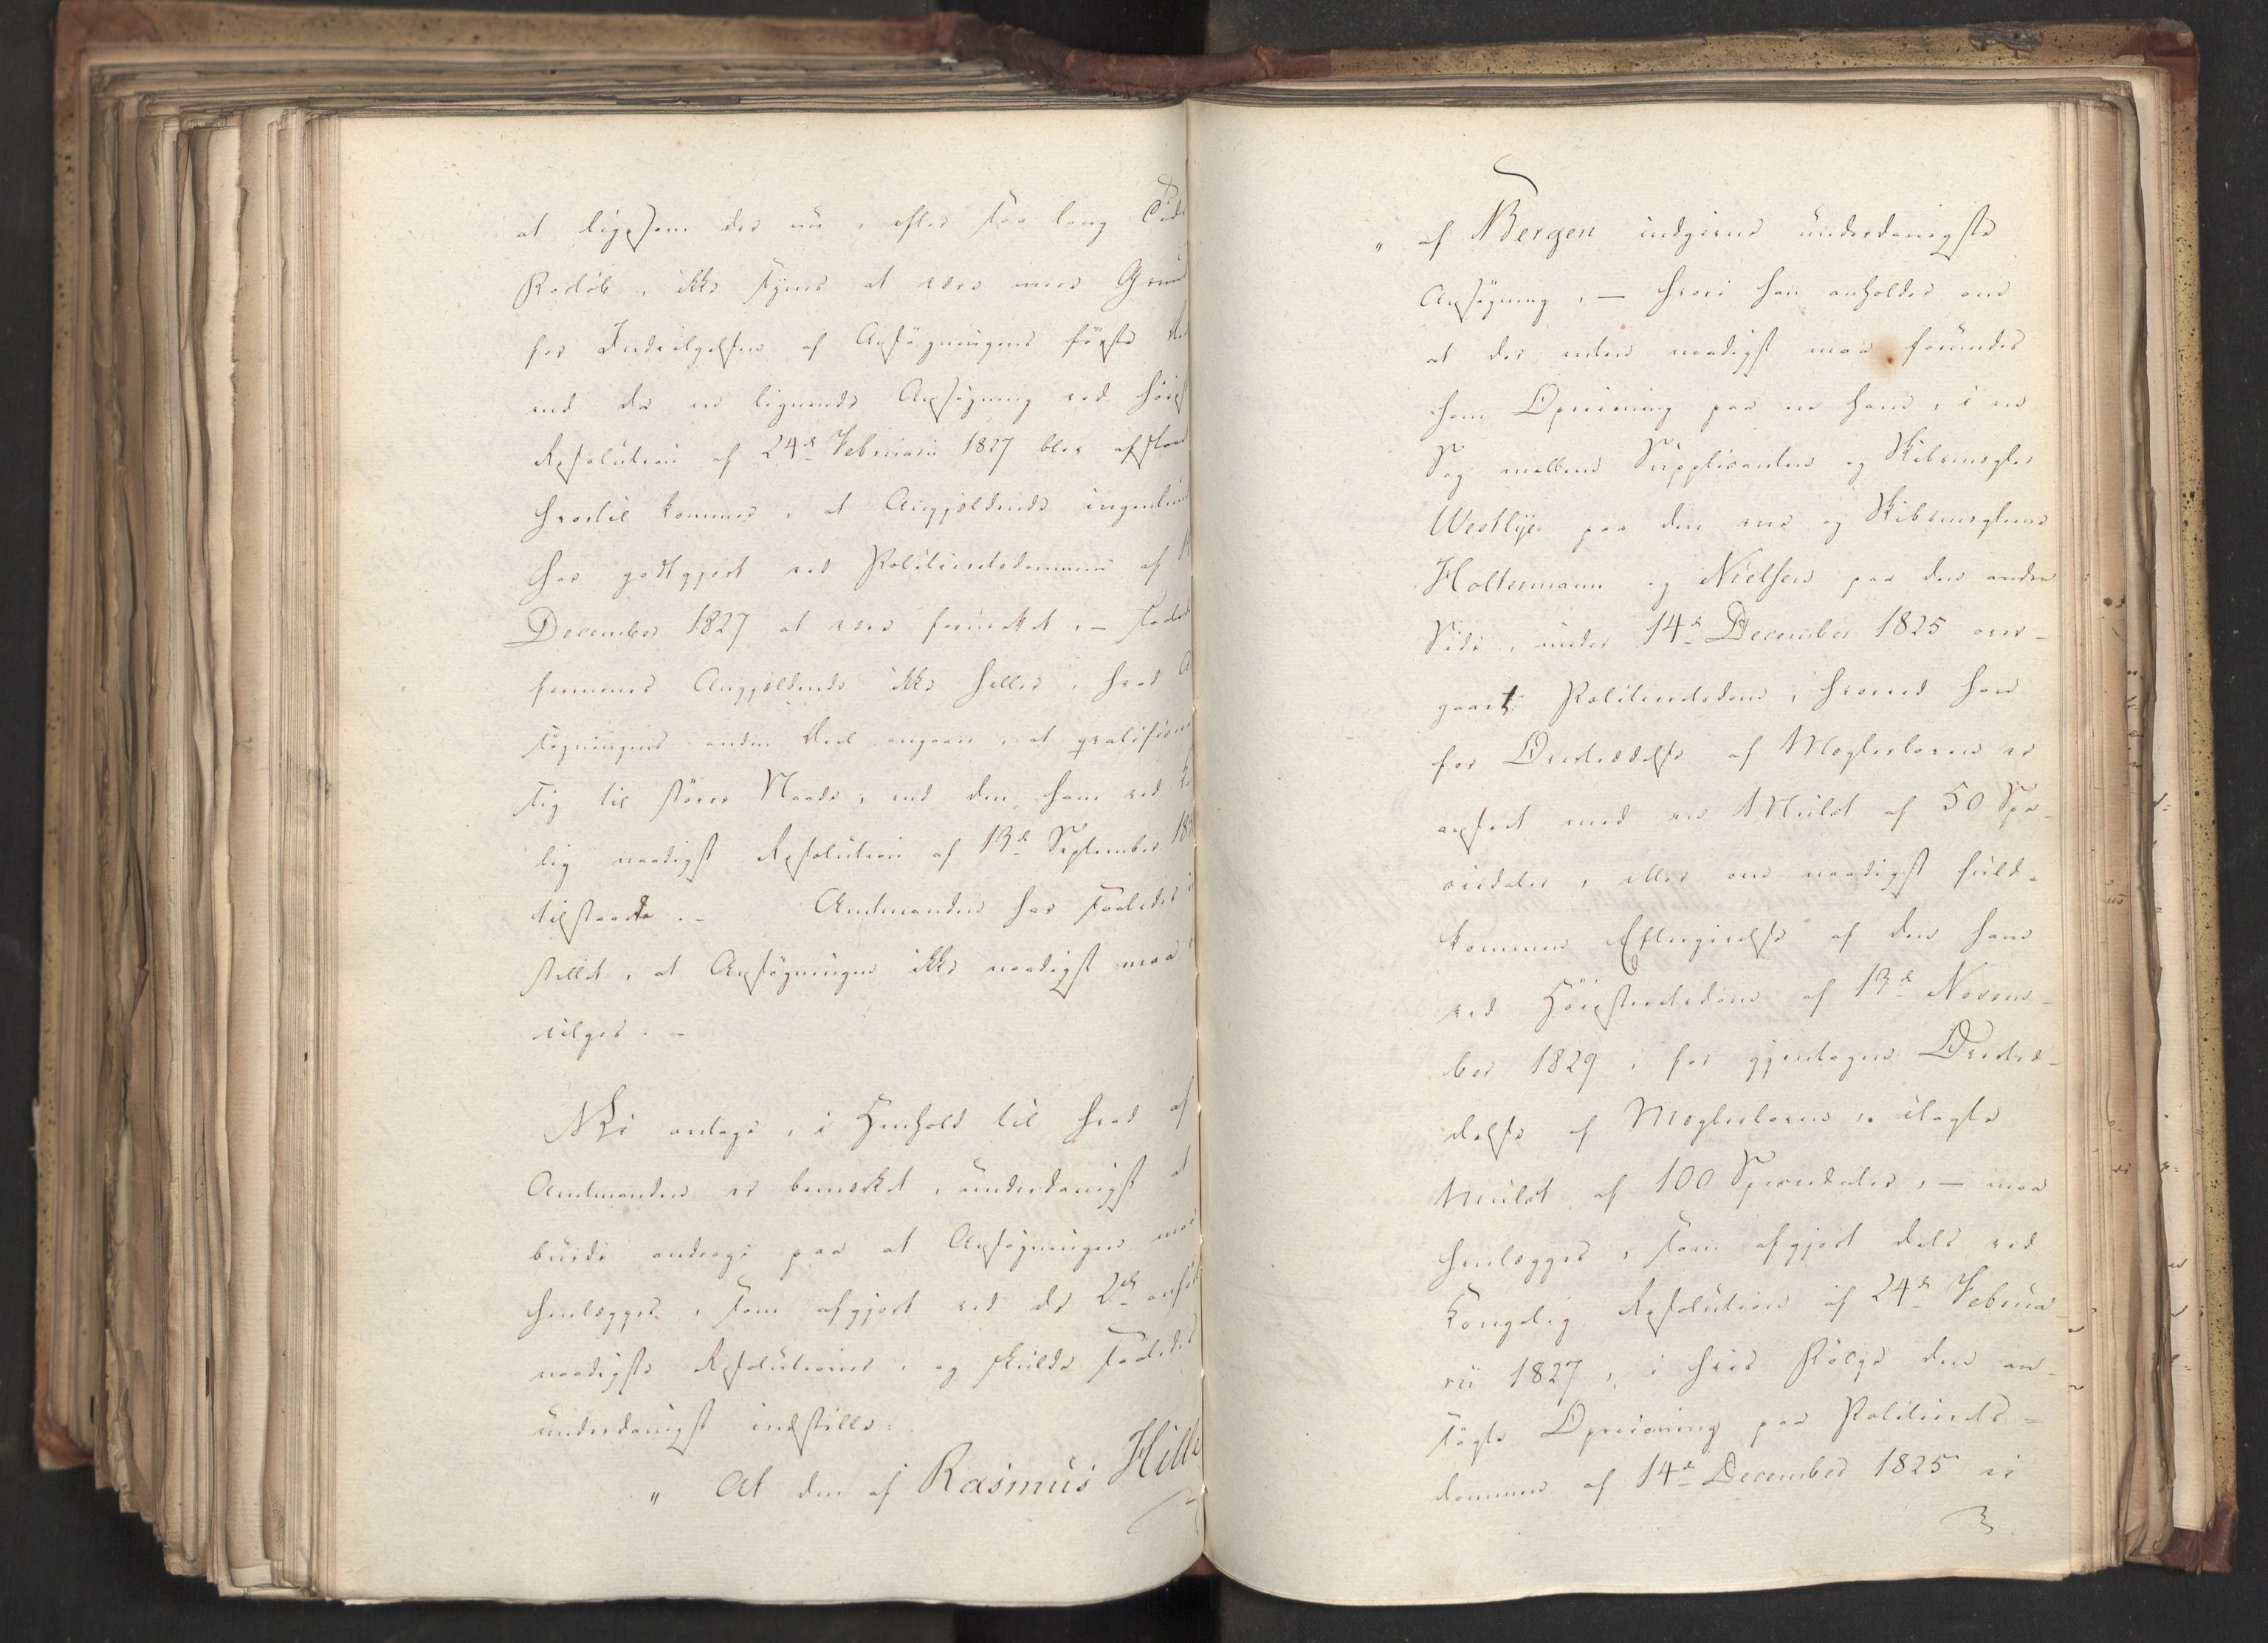 at ligesom der nu, efter saa lang Tids
Forløb, ikke synes at være mere Grund
for Indvilgelsen af Ansøgningens første De
end da en lignende Ansøgning ved høies
Resolution af 24de Februarii 1827 blev afslaa
hvortil kommer, at Angjældende ingenlun
har godtgjort ved Politieretsdommen af 1
December 1827 at være forurettet, – saaled
formener Angjældende ikke heller, hvad A
søgningens anden Deel angaaer, at qvalificere
sig til større Naade, end den ham ved Ko
lig naadigst Resolution af 13de September 18
tilstaaede. – Amtmanden har saaledes i
stillet, at Ansøgningen ikke naadigst maa
vilges. –
Vi antage, i Henhold til hvad af
Amtmanden er bemærket, underdanigst at
burde andrage paa at Ansøgningen maa
henlægges, som afgjort ved de 2de anfør
naadigste Resolutioner, og skulde saaledes
underdanigst indstille:
„ At den af Rasmus Hille
„ af Bergen indgivne underdanigste
Ansøgning, – hvori han anholder om
at der enten naadigst maa forundes
ham Opreisning paa en ham, i en
Sag mellem Supplicanten og Skibsmægler
Westlye paa den ene og Skibsmæglerne
Holtermann og Nielsen paa den anden
Side, under 14de December 1825 over-
gaaet Politieretsdom, hvorved han
for Overtrædelse af Mæglerloven er
anseet med en Mulct af 50 Spe-
ciedaler, eller om naadigst fuld-
kommen Eftergivelse af den ham
ved Høiesteretsdom af 13de Novem-
ber 1829, for gjentagen Overtræ-
delse af Mæglerloven, ilagte
Mulct af 100 Speciedaler, – maa
henlægges, som afgjort dels ved
Kongelig Resolution af 24de Februa-
rii 1827, i hvis Følge den an-
søgte Opreisning paa Politierets-
dommen af 14de December 1825 ei